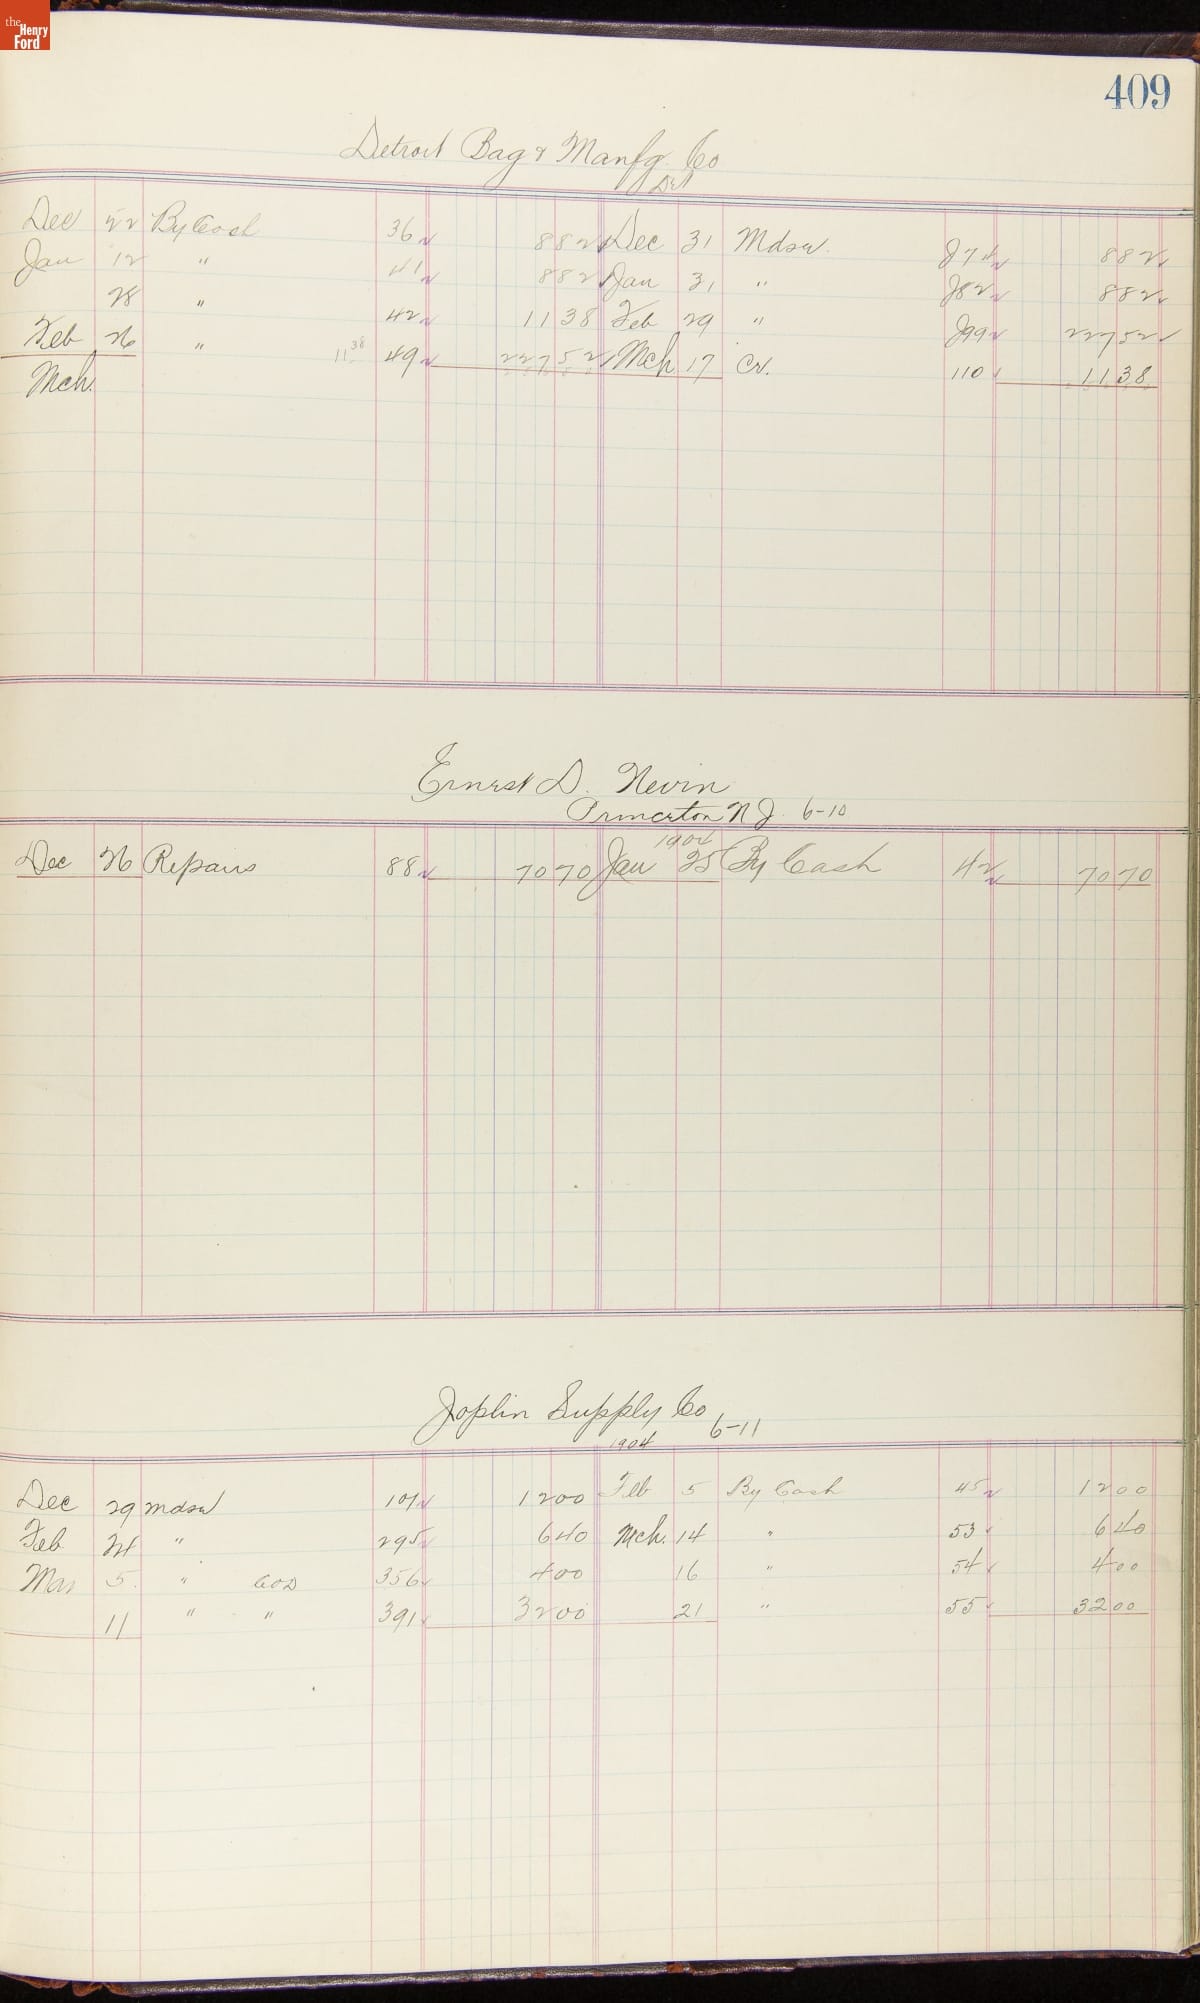 the Henry Ford
409
Detroit Bag & Manfg. Co
Det
Dec 22 By Cash 36 882 Dec 31 Mdse. J74 882
Jan 12 " 41 882 Jan 31 " J82 882
28 " 42 1138 Feb 29 " J99 22752
Feb 26 " 1138 49 22752 Mch 17 Cr. 110 1138
Mch.
Ernest D. Nevin
Princeton N J. 6-10
1904
Dec 26 Repairs 88 7070 Jan 25 By Cash 42 7070
Joplin Supply Co
6-11
1904
Dec 29 Mdse 101 1200 Feb 5 By Cash 45 1200
Feb 24 " 295 640 Mch. 14 " 53 640
Mar 5. " COD 356 400 16 " 54 400
11 " " 391 3200 21 " 55 3200